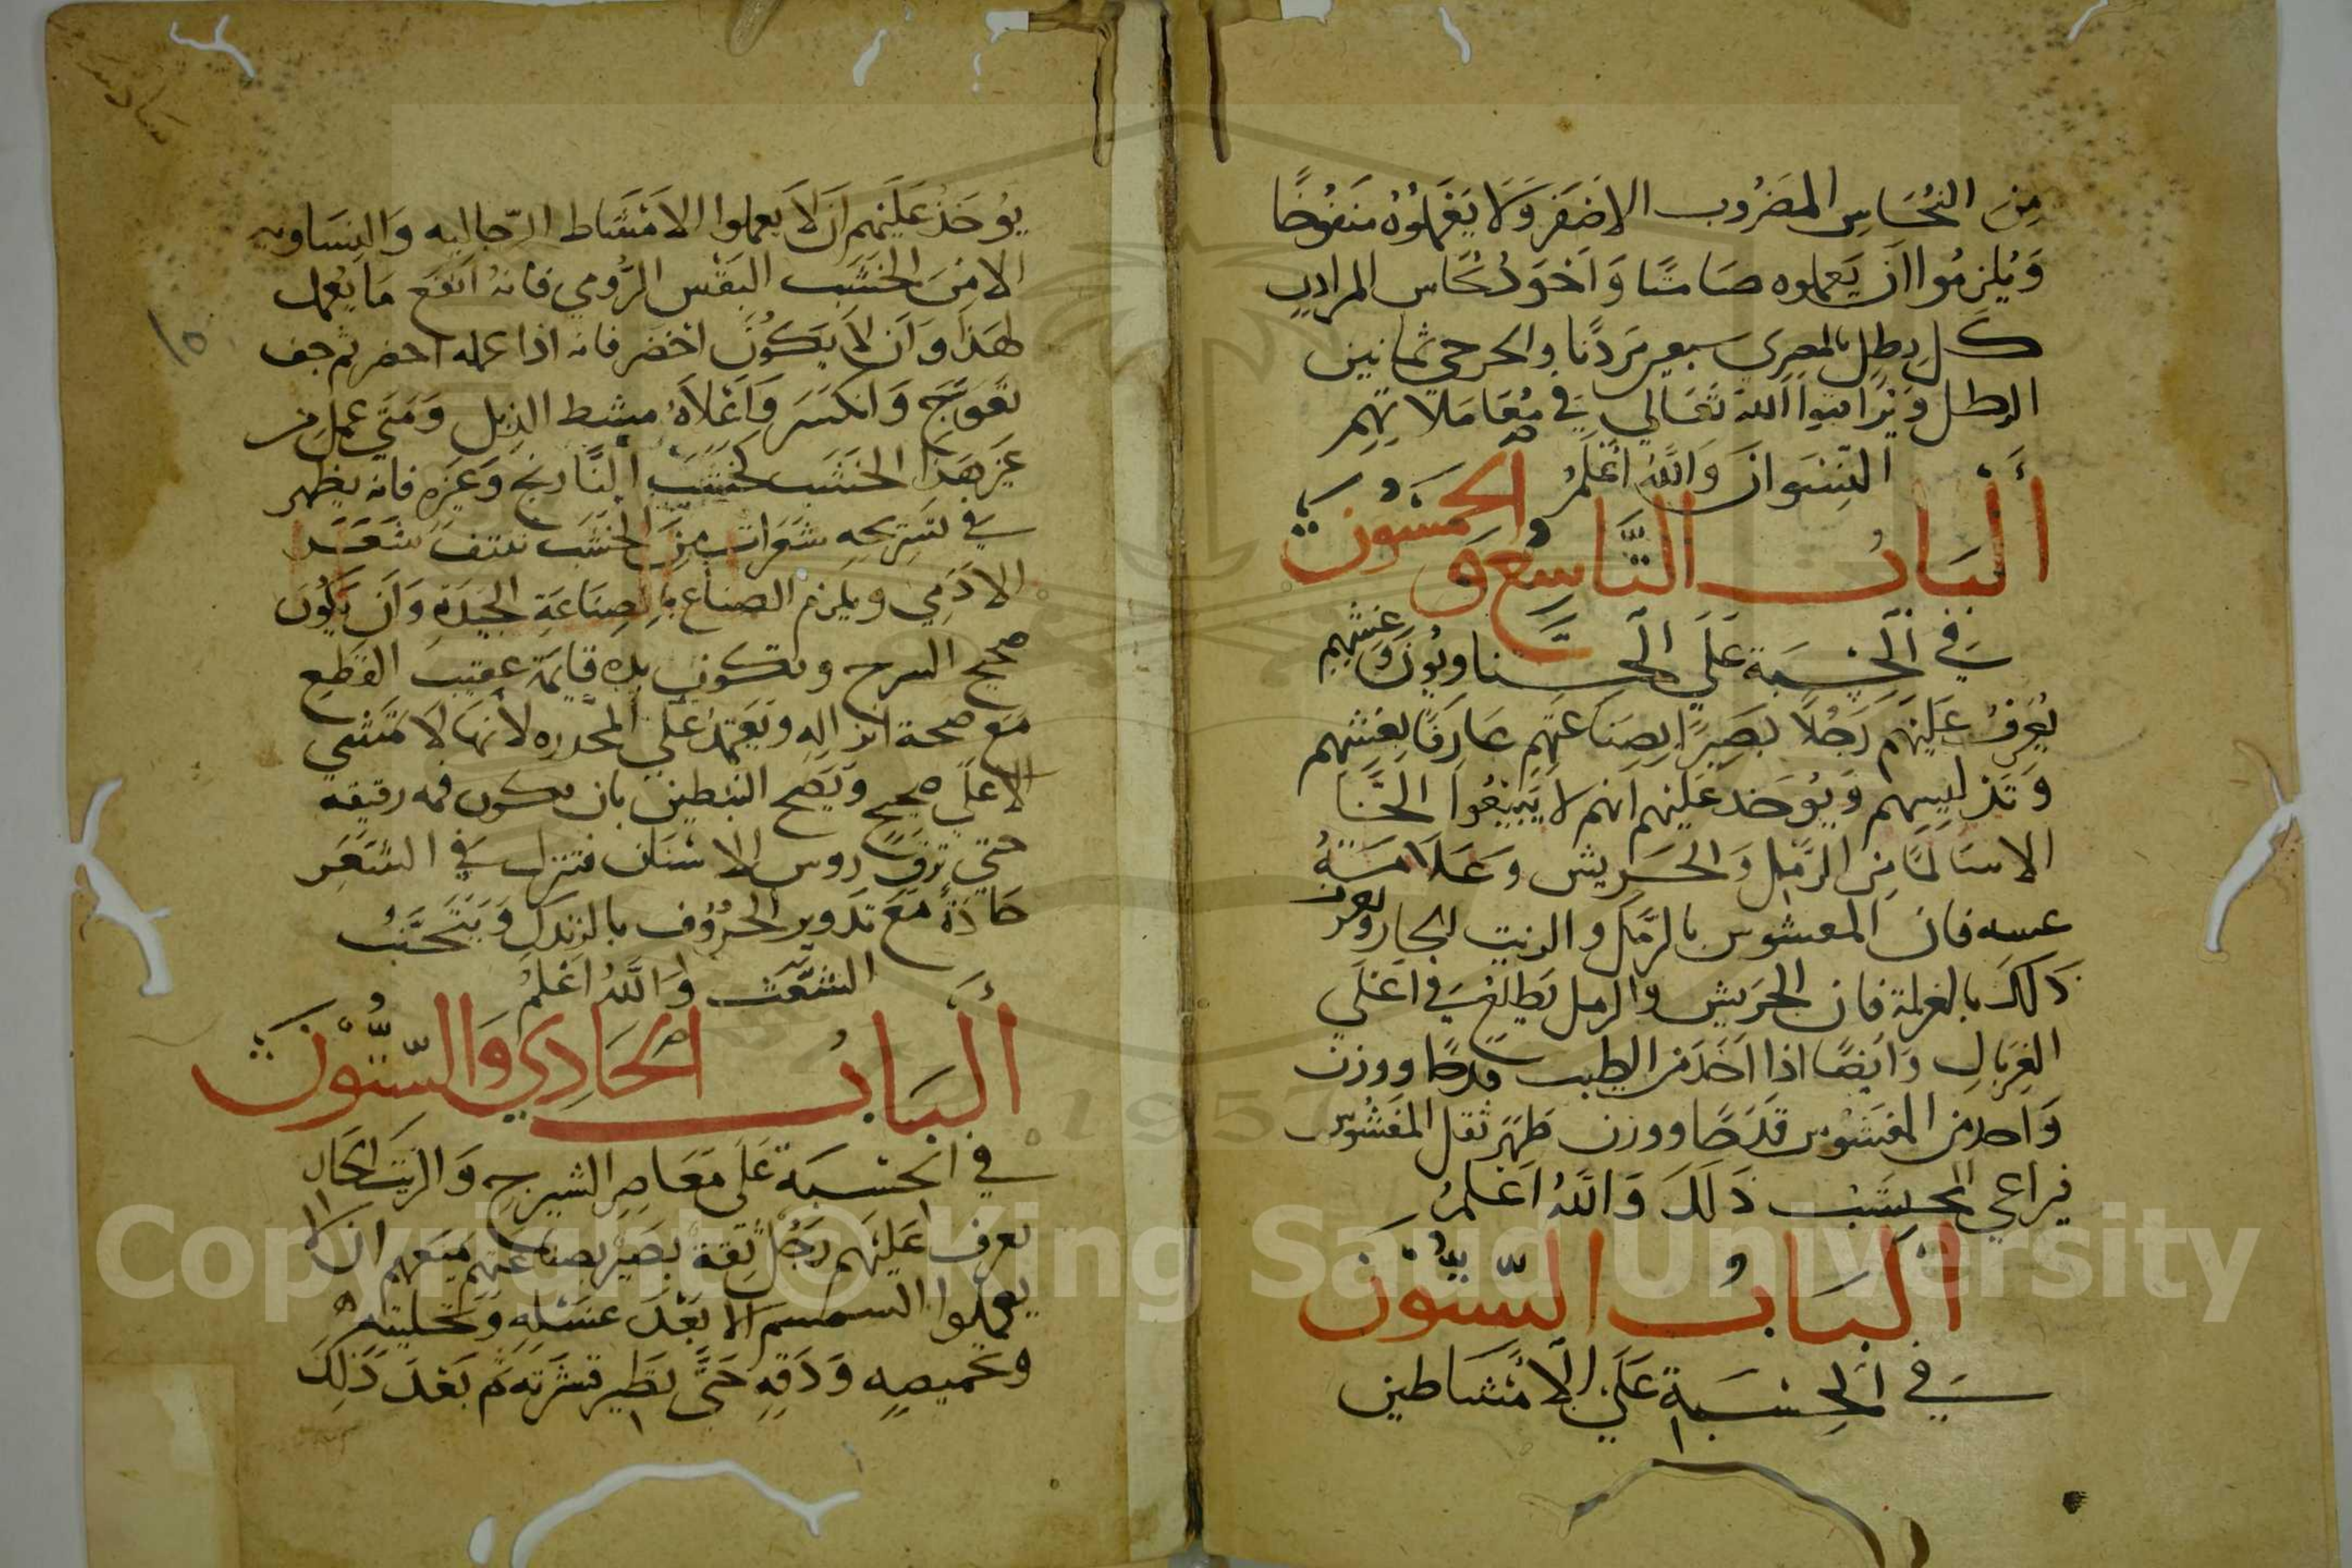 مِن النُحَاسِ المضرُوب الاصَفرَ وَلَا يَعْمَلُوْهُ مَنفُوخًا
وَيُلزمُوا اَنْ يَعملوه صَامتًا وَاَخوَد نُحاس المرادن
كل رِطلِ بالمصرِي سبعين مَردَنًا والحرحى ثمانين
الرطل وَيُراقبوا اللهَ تعَالي في مُعَامَلاتهِم
النّسْوان وَاللهُ اَعْلَمُ
اَلبَابُ التَّاسِعُ وَالخمسُونَ
في اَلحِسْبَة عَلَي الحِناويُونَ وَغِشهِم
يُعَرفُ عَلَيْهِم رَجُلًا بصَيرًا بِصِنَاعَتِهِم عارفًا بِغشِهم
وَتدليسِهِم وَيُوخد عَلَيْهم انهم لا يَبيْعُوا الحنَّا
الا سَالمًا مِن الرَّمل وَالحَريش وَعَلَامَةُ
غسه فان المغشوس بالرَّمل والزيت الحار ويعرف
ذَلكَ بالغربلة فان الحَريش والرمل يَطلع في اَعْلَي
الغربالِ وَايضًا اذا اَخَذ من الطيب قدحًا ووزن
وَاخد من المغشُوش قَدَحًا ووزن ظهَر ثقل المغشُوش
فيراعي المحتسب ذَلكَ وَاللهُ اَعلمُ
اَلبَابُ السّتّوْنَ
في اَلحِسْبَةِ عَلَي الاَمْشَاطين
يُوخَذ عَلَيْهِم اَنْ لَا يعملوا الاَمْشَاط الرّجاليه وَالنِسَاويه
الا مِنَ الخَشَبِ البَقْس الرُّومي فانهُ اَنفَع مَا يُعمل
لهَذَا وَاَن لَا يَكُونَ اخْضَر فانه اذا عمله اخضر ثم جف
تعَوّجَ وَانكسَر وَاَعْلَاهُ مشط الذبل وَمَتَي عمل من
غَيْر هَذَا الخَشَب كخشَب النَّارنج وَغَيرَه فانه يظهر
في تَسَريحِهِ شَعَرَات مِنَ الخشَب تنتف شعَر
الاَدَمِي ويلزم الصناع بالصِنَاعَةِ الجَيدَةِ وَاَن يَكُونَ
صحيح السرح وتكون يده قايمَة عقيب القطعِ
مَع صحة انزاله ويَعتمدُ عَلَي المحدره لاَنهَا لَا تمشي
الا عَلَي صحيح وَيصح التبطين بان تكون فمه رقيقه
حَتي ترق روس الاسنان فتنزل في الشعَر
حَادَةً مَعَ تدوير الحُرُوف بالزندل وَيَتَجَنّبُ
الشعّث وَاللهُ اعْلَمُ
اَلبَابُ الحَادِي وَالسّتّونَ
في اَلحسْبَة عَلَي مَعَاصِر الشيرج وَالزيت الحَار
يعرف عَلَيْهِم رَجُل ثِقَة بَصَير بصناعَتِهِم يَمنعَهم ان لا
يعملوا السمسم الا بَعْدَ غسْلِه وَتحليته
وتحميصِه وَدَقِهِ حَتَّى يَطَير قشرَته ثم بَعْدَ ذَلِكَ
Copyright © King Saud University
1957